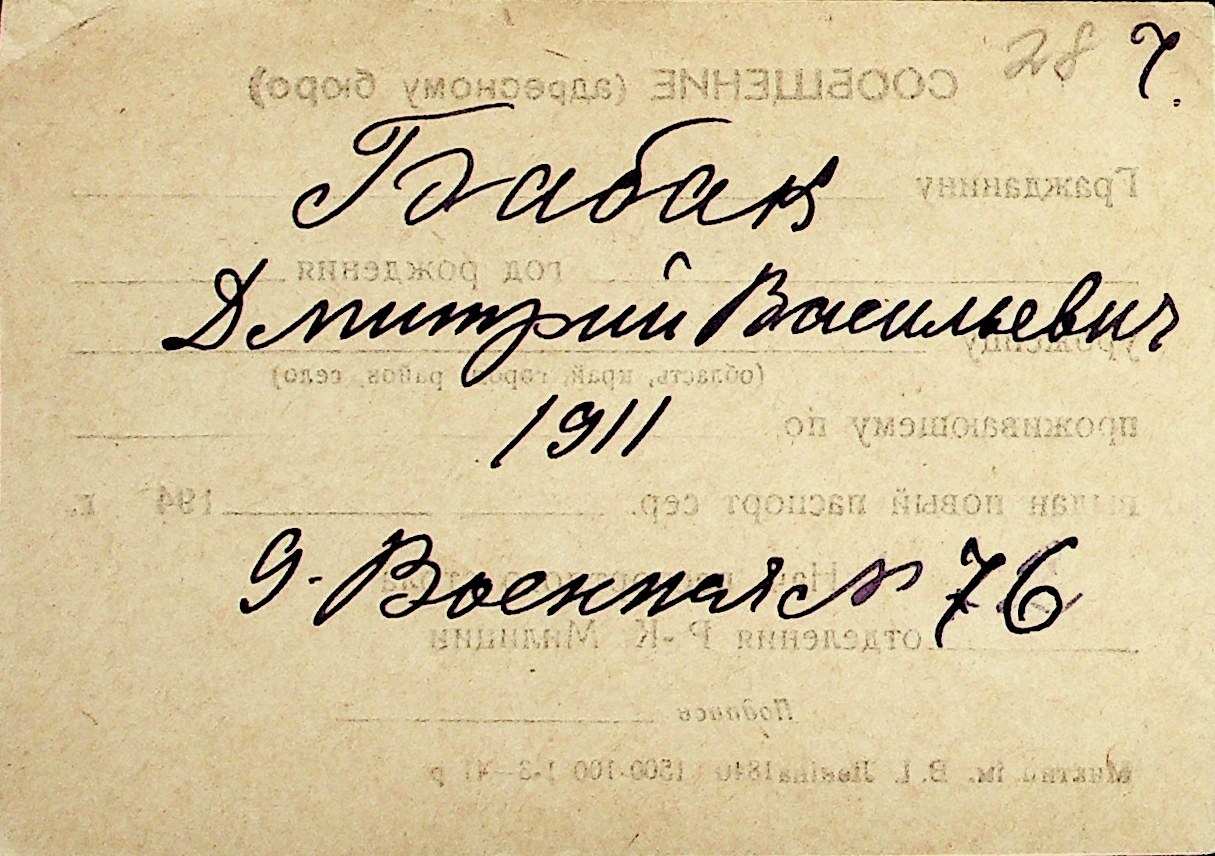 28 7.
СООБЩЕНИЕ (адресному бюро)
Бабак
Гражданину
год рождения
Дмитрий Васильевич
уроженцу
(область, край, город, район, село)
1911
проживающему по
выдан новый паспорт сер. 194 г.
9. Военная № 76
отделения Р.-К. Милиции
Подпись
ім. В. І. Леніна 1840 1500-100 1-3-41 р